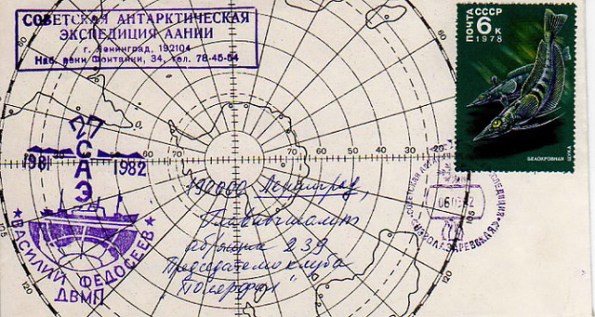 СОВЕТСКАЯ АНТАРКТИЧЕСКАЯ
ЭКСПЕДИЦИЯ ААНИИ
г. Ленинград, 192104
Наб. реки Фонтанки, 34, тел. 78-45-54
ПОЧТА СССР
6 к
1978
БЕЛОКРОВНАЯ
ЩУКА
27
САЭ
1981 1982
ВАСИЛИЙ ФЕДОСЕЕВ
ДВМП
190000 Ленинград,
Главпочтамт
аб/ящик 239
Председателю клуба
СОВЕТСКАЯ ЭКСПЕДИЦИЯ
НОВОЛАЗАРЕВСКАЯ
60
120